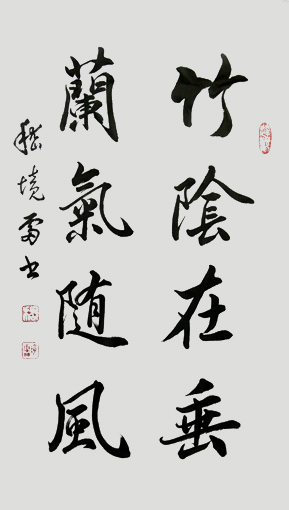 竹陰在垂
蘭氣随風